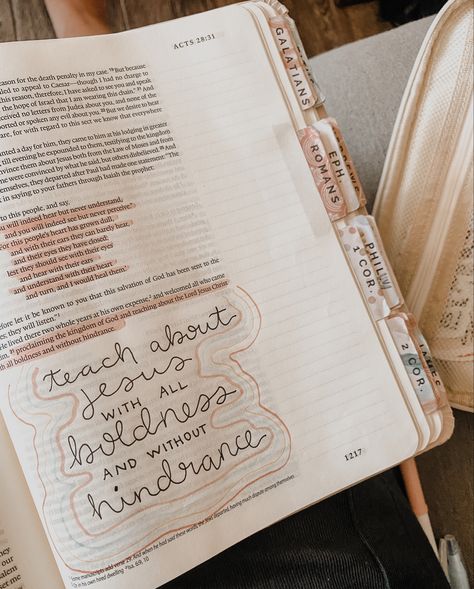 ACTS 28:31
reason for the death penalty in my case. 19 But because
led to appeal to Caesar—though I had no charge to
this reason, therefore, I have asked to see you and speak
the hope of Israel that I am wearing this chain." 21 And
received no letters from Judea about you, and none of the
ported or spoken any evil about you. 22 But we desire to hear
are, for with regard to this sect we know that everywhere
inted a day for him, they came to him at his lodging in greater
till evening he expounded to them, testifying to the kingdom
nvince them about Jesus both from the Law of Moses and from
were convinced by what he said, but others disbelieved. 25 And
hemselves, they departed after Paul had made one statement: "The
in saying to your fathers through Isaiah the prophet:
to this people, and say,
ou will indeed hear but never understand,
and you will indeed see but never perceive."
For this people's heart has grown dull,
and with their ears they can barely hear,
and their eyes they have closed;
lest they should see with their eyes
and hear with their ears
and understand with their heart
and turn, and I would heal them.'
efore let it be known to you that this salvation of God has been sent to the
es; they will listen."
He lived there two whole years at his own expense, and welcomed all who came
im, 31 proclaiming the kingdom of God and teaching about the Lord Jesus Christ
ith all boldness and without hindrance.
teach about
Jesus
WITH ALL
boldness
AND WITHOUT
hindrance
Some manuscripts add verse 29: And when he had said these words, the Jews departed, having much dispute among themselves
Or in his own hired dwelling
Isa. 6:9, 10
1217
GALATIANS
ROMANS
EPH
PHIL
1 COR.
2 COR.